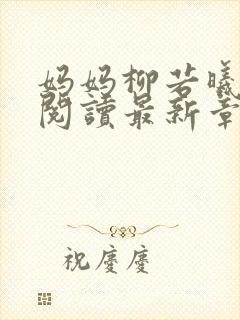 妈妈柳若曦
閱讀最新章
祝慶慶